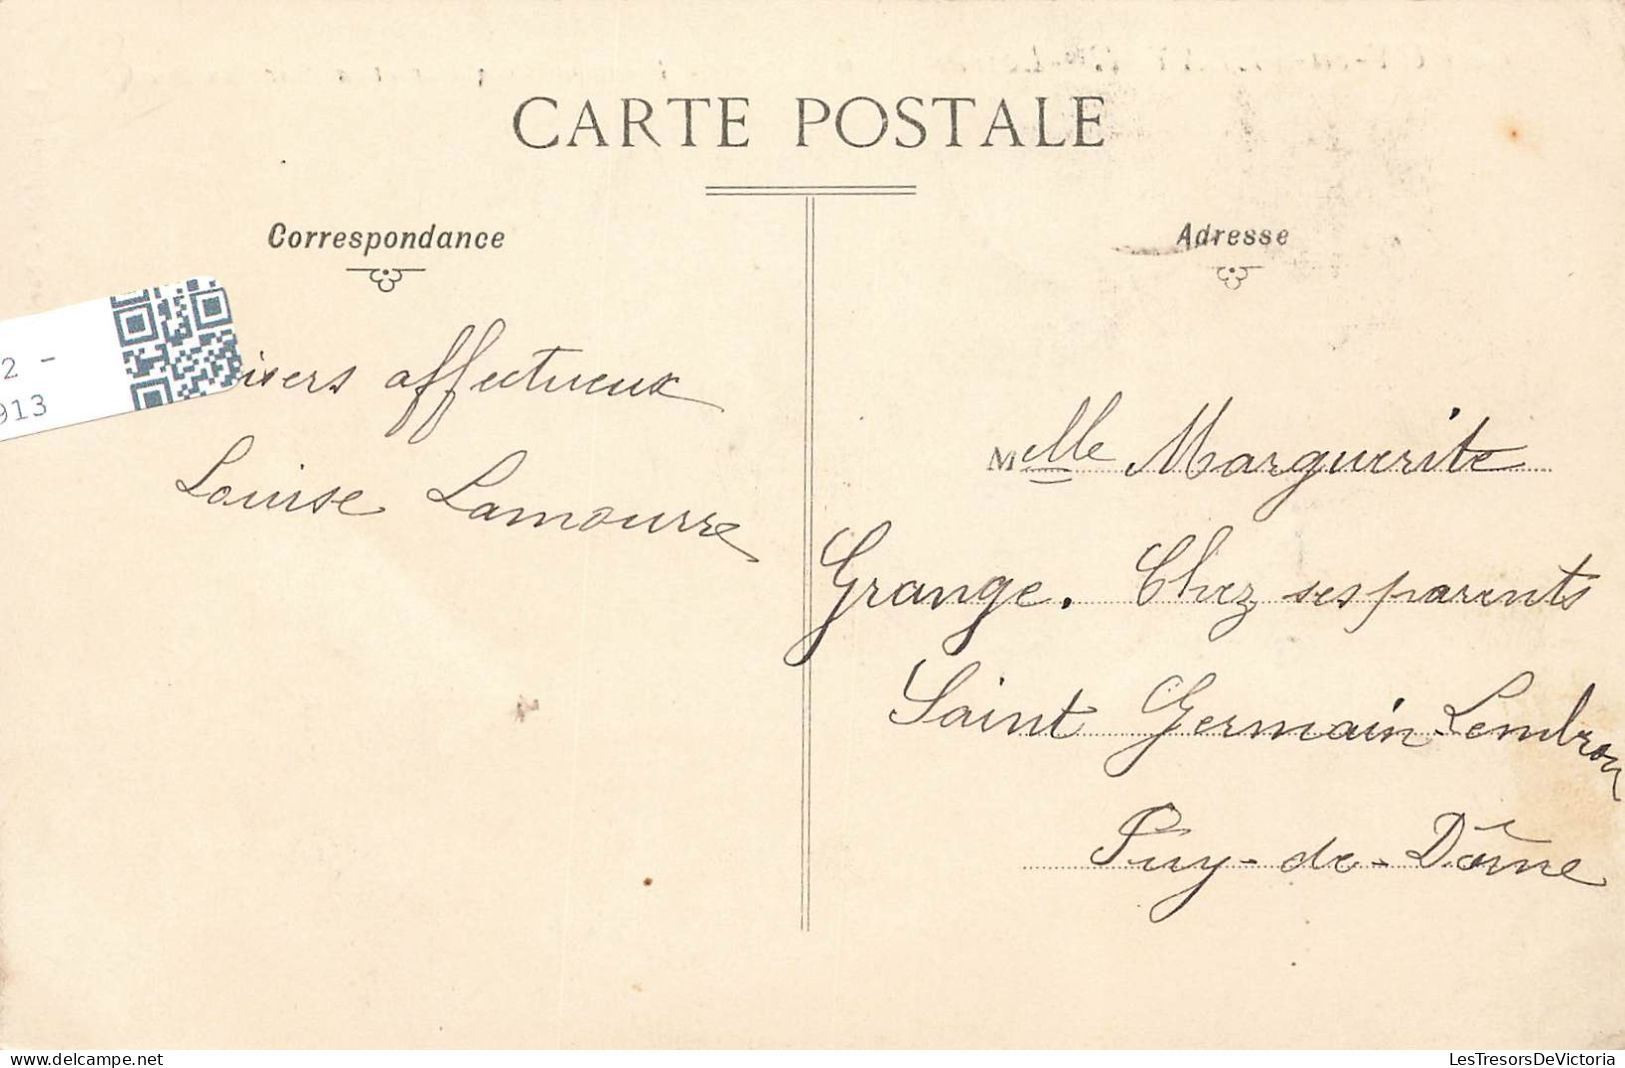 CARTE POSTALE
Correspondance
Adresse
2 -
913
affectueux
Louise Lamourre
Melle Marguerite
Grange. Chez ses parents
Saint Germain Lembron
Puy-de-Dôme
delcampe.net
LesTresorsDeVictoria